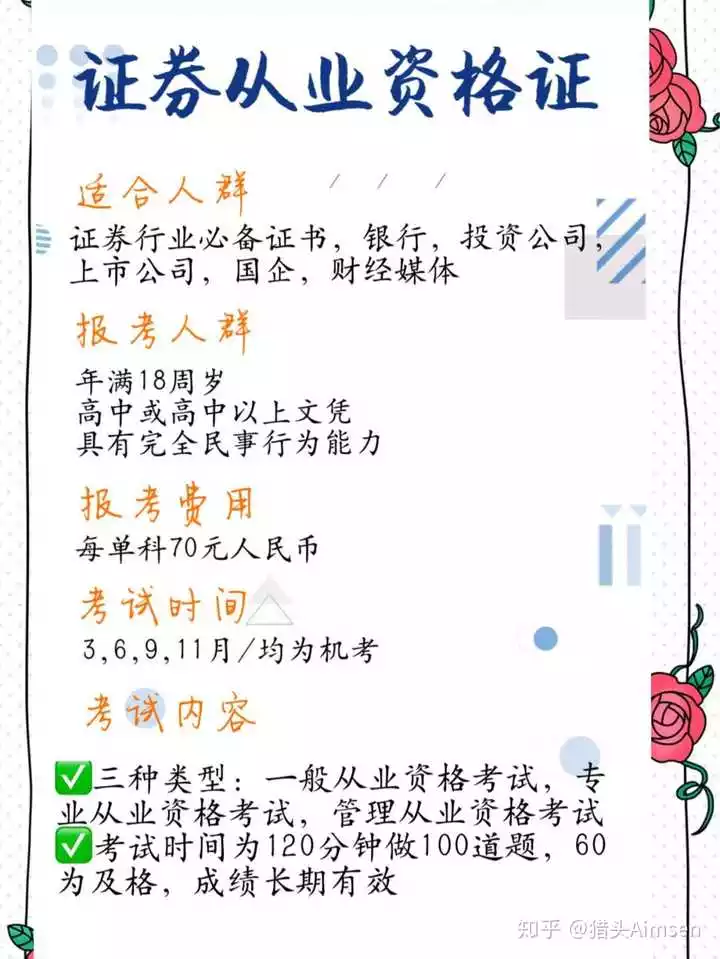 证券从业资格证
适合人群
证券行业必备证书，银行，投资公司，
上市公司，国企，财经媒体
报考人群
年满18周岁
高中或高中以上文凭
具有完全民事行为能力
报考费用
每单科70元人民币
考试时间
3,6,9,11月/均为机考
考试内容
✅三种类型：一般从业资格考试，专
业从业资格考试，管理从业资格考试
✅考试时间为120分钟做100道题，60
为及格，成绩长期有效
知乎 @猎头Aimsen